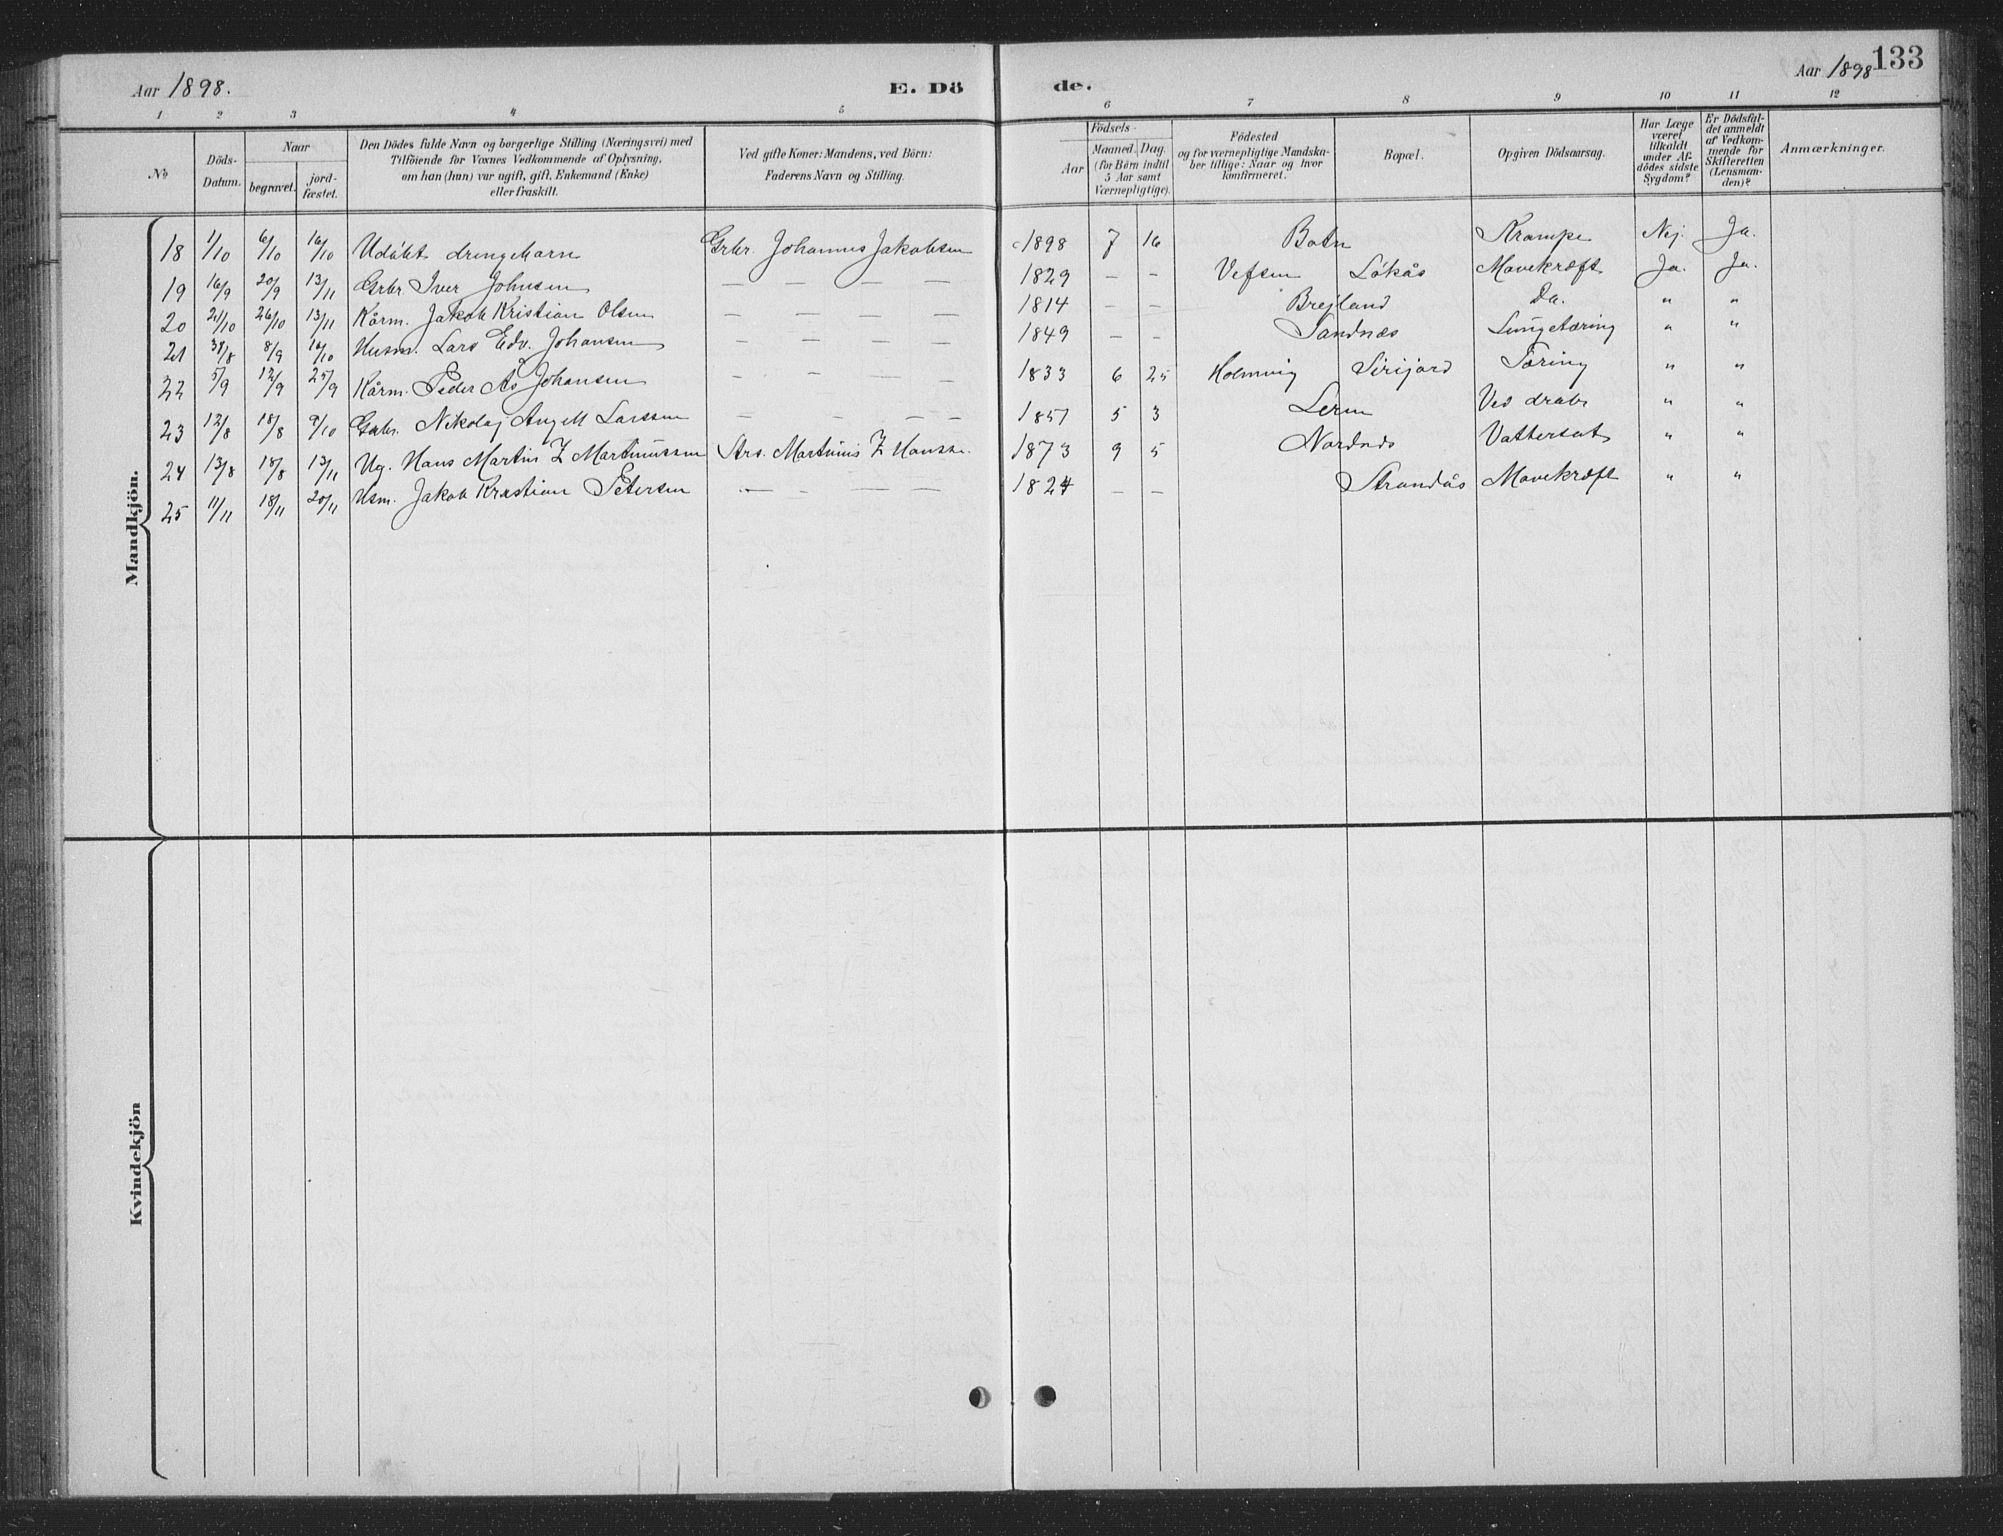 Aar 1898. E. Dö de. Aar 1898 133
1 2 3 4 5 6 7 8 9 10 11 12
№
Döds-Datum.
Naar
begravet.
jord-fæstet.
Den Dödes fulde Navn og borgerlige Stilling (Næringsvei) med
Tilföiende for Voxnes Vedkommende af Oplysning,
om han (hun) var ugift, gift, Enkemand (Enke)
eller fraskilt.
Ved gifte Koner: Mandens, ved Börn:
Faderens Navn og Stilling.
Födsels-
Aar
Maaned. Dag.
(for Börn indtil
5 Aar samt
Værnepligtige).
Födested
og for værnepligtige Mandska-
ber tillige: Naar og hvor
konfirmeret.
Bopæl.
Opgiven Dödsaarsag.
Har Læge
været
tilkaldt
under Af-
dödes sidste
Sygdom?
Er Dödsfal-
det anmeldt
af Vedkom-
mende for
Skifteretten
(Lensman-
den)?
Anmærkninger.
Mandkjön.
18 1/10 6/10 16/10 Udöbt drengebarn Grbr. Johannes Jakobsen 1898 7 16 Botn Krampe Nej. Ja.
19 16/9 20/9 13/11 Grbr. Iver Johnsen — — — — 1829 — — Vefsen Løkås Mavekræft Ja. Ja.
20 21/10 26/10 13/11 Kårm. Jakob Kristian Olsen — — — — 1814 — — Brejland Do. " "
21 31/8 8/9 16/10 Husm. Lars Edv. Johansen — — — — 1849 — — Sandnæs Lungetæring " "
22 5/9 12/9 25/9 Kårm. Peder As Johansen — — — — 1833 6 25 Holmvig Sirijord Tæring " "
23 12/8 18/8 9/10 Grbr. Nikolaj Angell Larssen — — — — 1851 5 3 Leren Ved drabe " "
24 13/8 18/8 13/11 Ug. Hans Martin Z Martinussen Ars. Martinus Z Hanssen. 1873 9 5 Nordnes Vattersot " "
25 11/11 18/11 20/11 Husm. Jakob Kristian Petersen — — — — 1824 — — Strandås Mavekræft " "
Kvindekjön